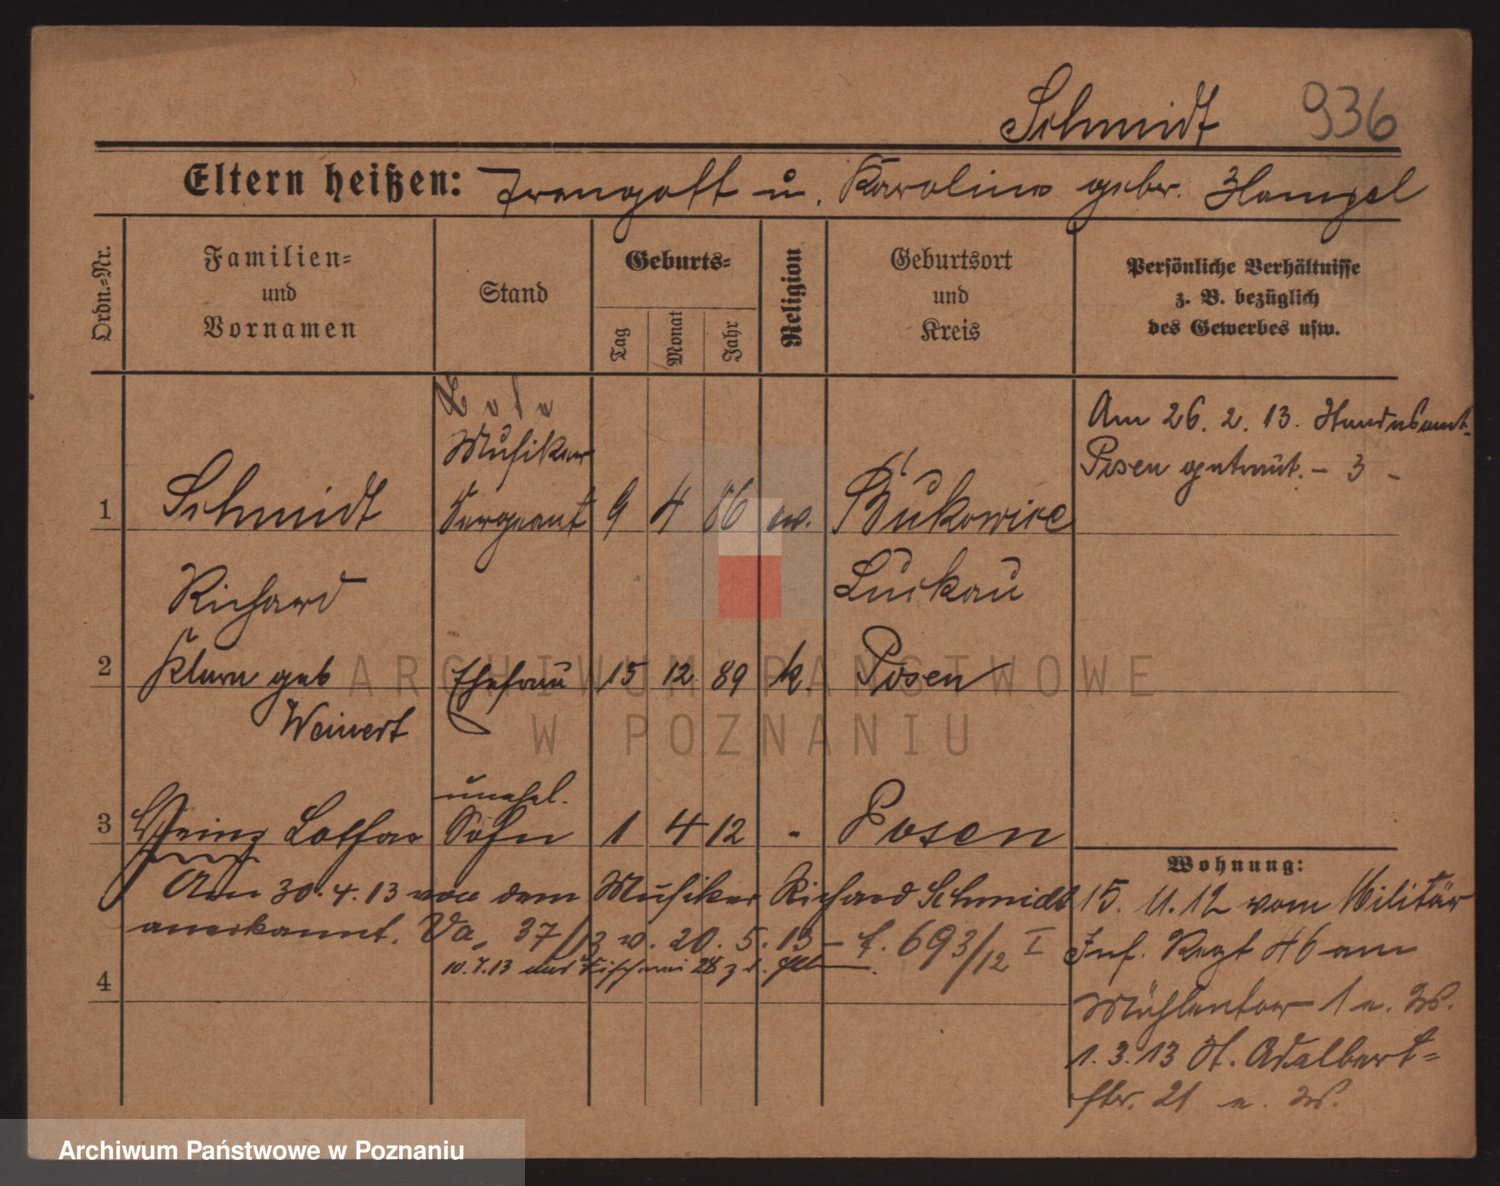 Schmidt 936
Eltern heißen: Traugott u. Karoline gebr. Hampel
Ordn.-Nr.
Familien-
und
Vornamen
Stand
Geburts-
Tag
Monat
Jahr
Religion
Geburtsort
und
Kreis
Persönliche Verhältnisse
z. B. bezüglich
des Gewerbes usw.
Am 26. 2. 13.
Posen - 3 -
Musiker
1 Schmidt Sergeant 9 4 86 ev. Bukowice
Richard Luckau
2 Klara geb Ehefrau 15 12 89 k. Posen
Weinert
unehel.
3 Heinz Lothar Sohn 1 4 12 " Posen
Am 30. 4. 13 von dem Musiker Richard Schmidt
anerkannt. Va, 37/13 v. 20. 5. 13 - f. 693/12 I
10. 7. 13
4
Wohnung:
15. 11. 12 vom Militär
Inf. Regt 46 am
Mühlentor 1 a. W.
1. 3. 13 St. Adalbert-
str. 21 a. W.
ARCHIWUM PAŃSTWOWE
W POZNANIU
Archiwum Państwowe w Poznaniu